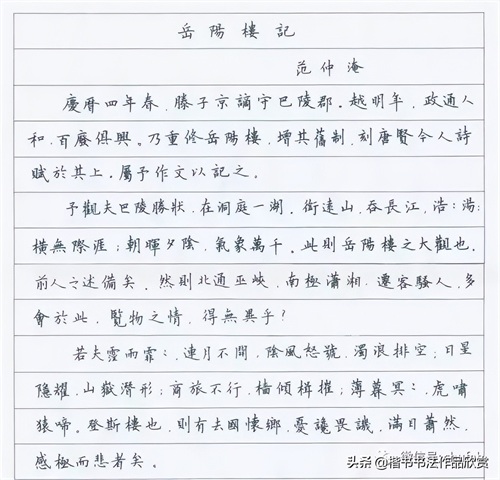 岳陽樓記
范仲淹
慶曆四年春，滕子京謫守巴陵郡。越明年，政通人
和，百廢俱興。乃重修岳陽樓，增其舊制，刻唐賢今人詩
賦於其上。屬予作文以記之。
予觀夫巴陵勝狀，在洞庭一湖。銜遠山，吞長江，浩〻湯〻
橫無際涯；朝暉夕陰，氣象萬千。此則岳陽樓之大觀也，
前人之述備矣。然則北通巫峽，南極瀟湘，遷客騷人，多
會於此，覽物之情，得無異乎？
若夫霪雨霏〻，連月不開，陰風怒號，濁浪排空；日星
隱耀，山嶽潛形；商旅不行，檣傾楫摧；薄暮冥〻，虎嘯
猿啼。登斯樓也，則有去國懷鄉，憂讒畏譏，滿目蕭然，
感極而悲者矣。
頭条 @楷书书法作品欣赏